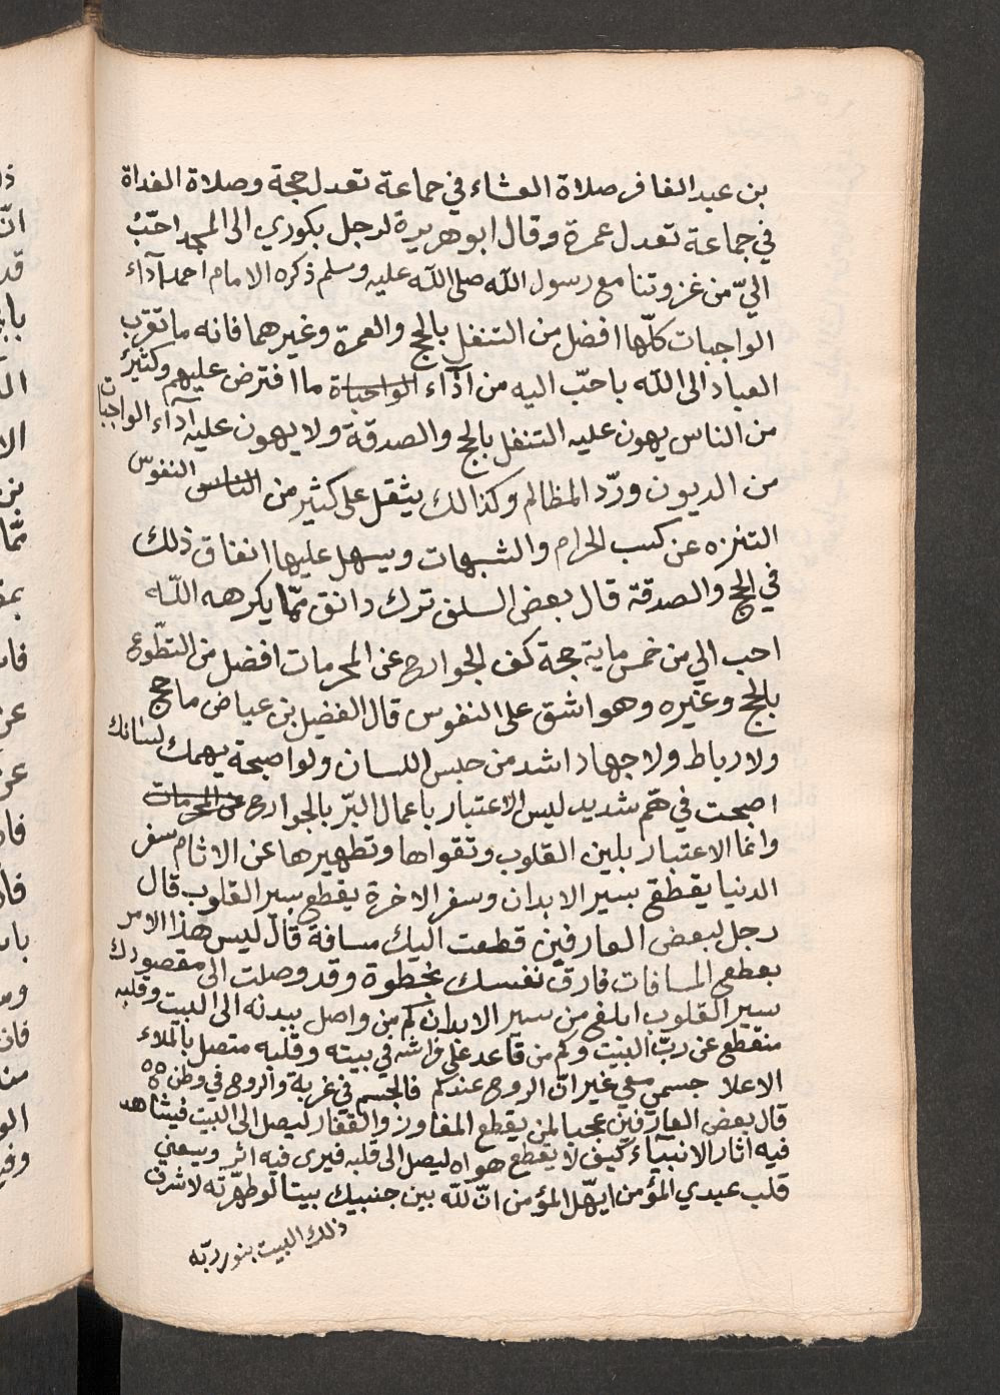 بن عبد الغافر صلاة العشاء في جماعة تعدل حجة وصلاة الغداة
في جماعة تعدل عمرة وقال ابو هريرة لرجل بكوري الى المسجد احبّ
اليّ من غزوتنا مع رسول الله صلى الله عليه وسلم ذكره الامام احمد اداء
الواجبات كلّها افضل من التنفل بالحج والعمرة وغيرهما فانه ما تقرّب
العباد الى الله باحبّ اليه من اداء الواجباة ما افترض عليهم وكثيرٌ
من الناس يهون عليه التنفل بالحج والصدقة ولا يهون عليه اداء الواجبات
من الديون وردّ المظالم وكذالك يثقل على كثير من الناس النفوس
التنزه عن كسب الحرام والشبهات ويسهل عليها انفاق ذلك
في الحج والصدقة قال بعض السلف ترك دانق ممّا يكرهه اللّه
احب الي من خمس ماية حجة كف الجوارح عن المحرمات افضل من التطّوع
بالحج وغيره وهو اشق على النفوس قال الفضيل بن عياض ما حج
ولا رباط ولا جهاد اشد من حبس اللسان ولو اصبحة يهمك لسانك
اصبحت في همّ شديد ليس الاعتبار باعمال البرّ بالجوارح عن المحرمات
وانما الاعتبار بلين القلوب وتقواها وتطهيرها عن الاثام سفر
الدنيا يقطع بسير الابدان وسفر الاخرة يقطع بسير القلوب قال
رجل لبعض العارفين قطعت اليك مسافة قال ليس هذا الامر
بعطع المسافات فارق نفسك بخطوة وقد وصلت الى مقصودك
سير القلوب ابلغ من سير الابدان كم من واصل ببدنه الى البيت وقلبه
منقطع عن ربّ البيت وكم من قاعد على فراشه في بيته وقلبه متصل بالملاء
الاعلا جسمي معي غير انّ الروح عندكم فالجسم في غربة والروح في وطن
قال بعض العارفين عجبا لمن يقطع المفاوز والقفار ليصل الى البيت فيشاهد
فيه اثار الانبياء كيف لا يقطع هواه ليصل الى قلبه فيرى فيه اثر ويسعني
قلب عبدي المؤمن ايهّا المؤمن انّ للّه بين جنبيك بيتا لو طهّرته لاشرق
ذلك البيت بنور ربّه